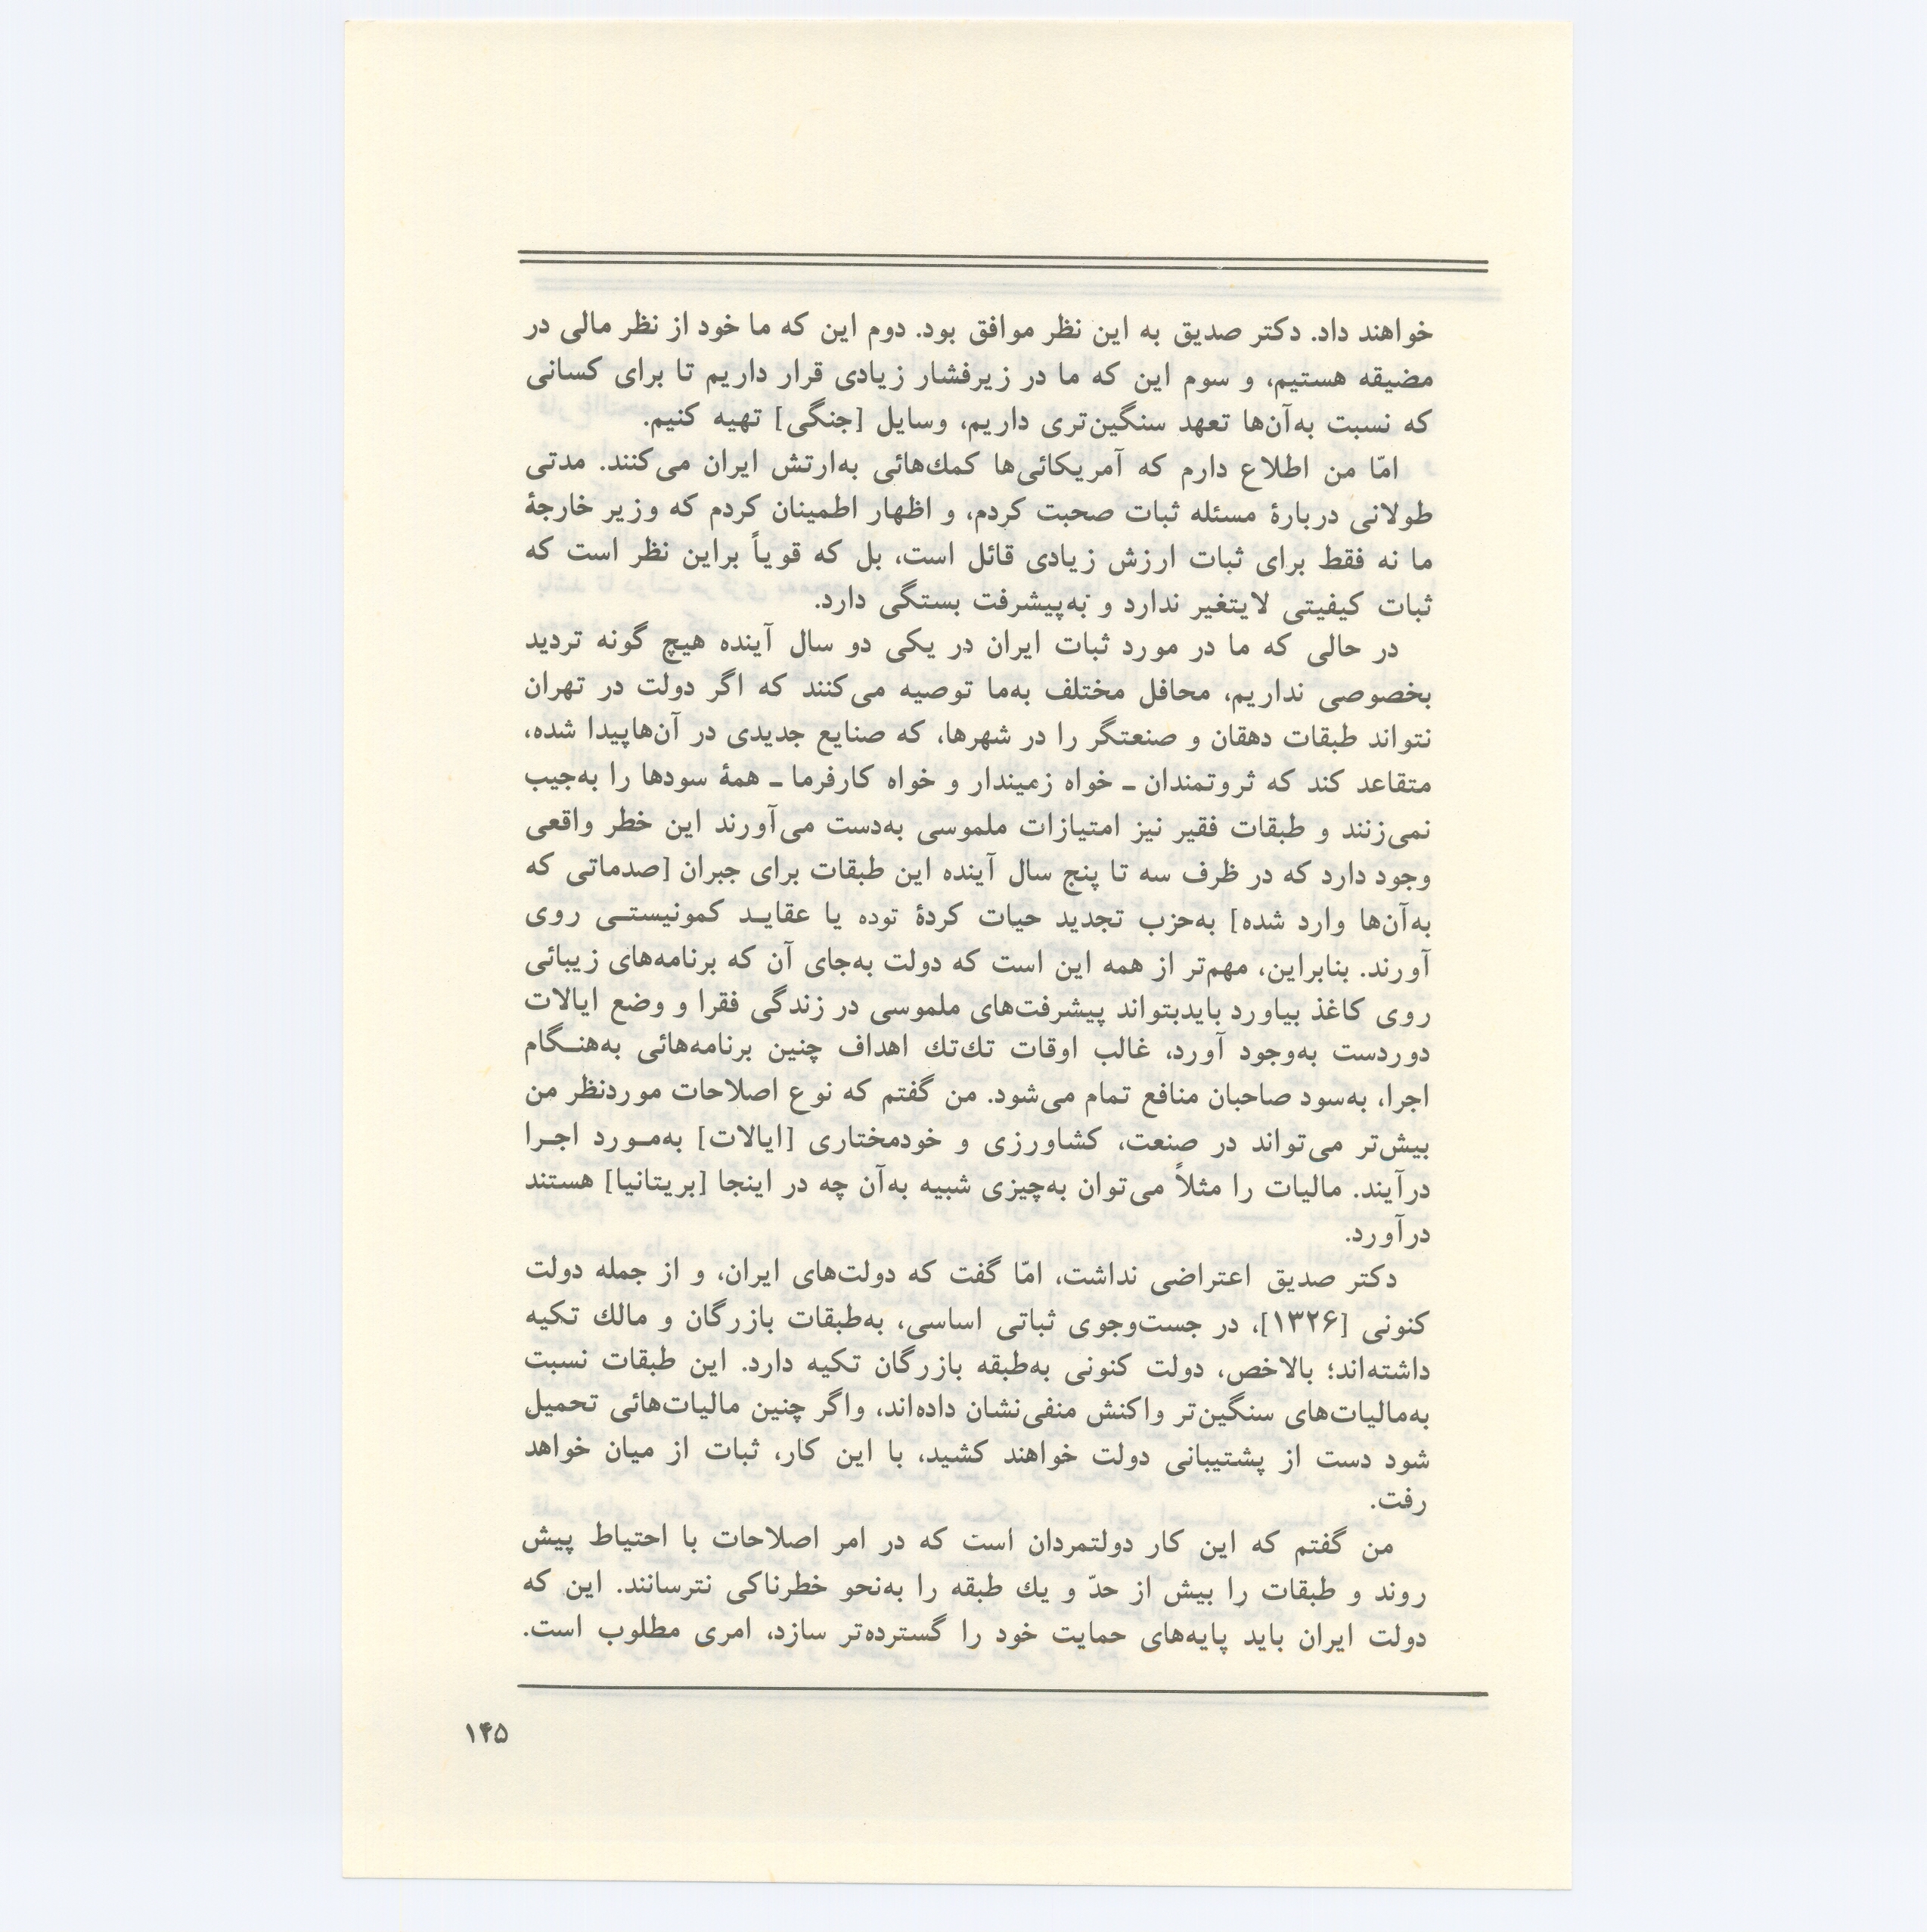 خواهند داد. دکتر صدیق به این نظر موافق بود. دوم این که ما خود از نظر مالی در
مضیقه هستیم، و سوم این که ما در زیرفشار زیادی قرار داریم تا برای کسانی
که نسبت به‌آن‌ها تعهد سنگین‌تری داریم، وسایل [جنگی] تهیه کنیم.
امّا من اطلاع دارم که آمریکائی‌ها کمك‌هائی به‌ارتش ایران می‌کنند. مدتی
طولانی دربارهٔ مسئله ثبات صحبت کردم، و اظهار اطمینان کردم که وزیر خارجهٔ
ما نه فقط برای ثبات ارزش زیادی قائل است، بل که قویاً براین نظر است که
ثبات کیفیتی لایتغیر ندارد و به‌پیشرفت بستگی دارد.
در حالی که ما در مورد ثبات ایران در یکی دو سال آینده هیچ گونه تردید
بخصوصی نداریم، محافل مختلف به‌ما توصیه می‌کنند که اگر دولت در تهران
نتواند طبقات دهقان و صنعتگر را در شهرها، که صنایع جدیدی در آن‌هاپیدا شده،
متقاعد کند که ثروتمندان ـ خواه زمیندار و خواه کارفرما ـ همهٔ سودها را به‌جیب
نمی‌زنند و طبقات فقیر نیز امتیازات ملموسی به‌دست می‌آورند این خطر واقعی
وجود دارد که در ظرف سه تا پنج سال آینده این طبقات برای جبران [صدماتی که
به‌آن‌ها وارد شده] به‌حزب تجدید حیات کردهٔ توده یا عقایـد کمونیستـی روی
آورند. بنابراین، مهم‌تر از همه این است که دولت به‌جای آن که برنامه‌های زیبائی
روی کاغذ بیاورد بایدبتواند پیشرفت‌های ملموسی در زندگی فقرا و وضع ایالات
دوردست به‌وجود آورد، غالب اوقات تك‌تك اهداف چنین برنامه‌هائی به‌هنـگام
اجرا، به‌سود صاحبان منافع تمام می‌شود. من گفتم که نوع اصلاحات موردنظر من
بیش‌تر می‌تواند در صنعت، کشاورزی و خودمختاری [ایالات] به‌مـورد اجـرا
درآیند. مالیات را مثلاً می‌توان به‌چیزی شبیه به‌آن چه در اینجا [بریتانیا] هستند
درآورد.
دکتر صدیق اعتراضی نداشت، امّا گفت که دولت‌های ایران، و از جمله دولت
کنونی [۱۳۲۶]، در جست‌وجوی ثباتی اساسی، به‌طبقات بازرگان و مالك تکیه
داشته‌اند؛ بالاخص، دولت کنونی به‌طبقه بازرگان تکیه دارد. این طبقات نسبت
به‌مالیات‌های سنگین‌تر واکنش منفی‌نشان داده‌اند، واگر چنین مالیات‌هائی تحمیل
شود دست از پشتیبانی دولت خواهند کشید، با این کار، ثبات از میان خواهد
رفت.
من گفتم که این کار دولتمردان است که در امر اصلاحات با احتیاط پیش
روند و طبقات را بیش از حدّ و یك طبقه را به‌نحو خطرناکی نترسانند. این که
دولت ایران باید پایه‌های حمایت خود را گسترده‌تر سازد، امری مطلوب است.
۱۴۵